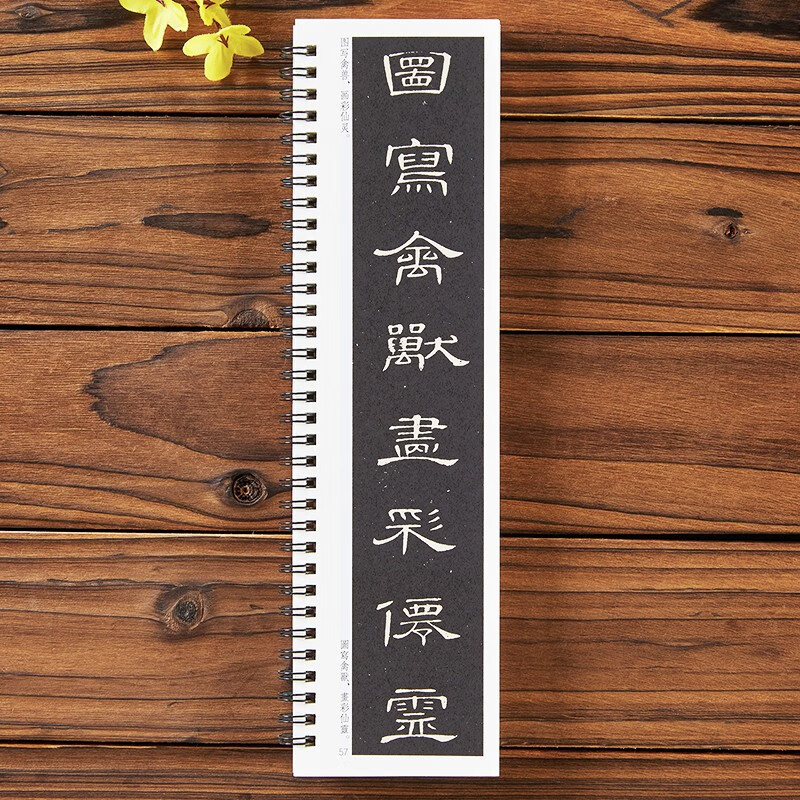 圖寫禽獸畫彩僊靈
图写禽兽，画彩仙灵。
圖寫禽獸，畫彩仙靈。
57